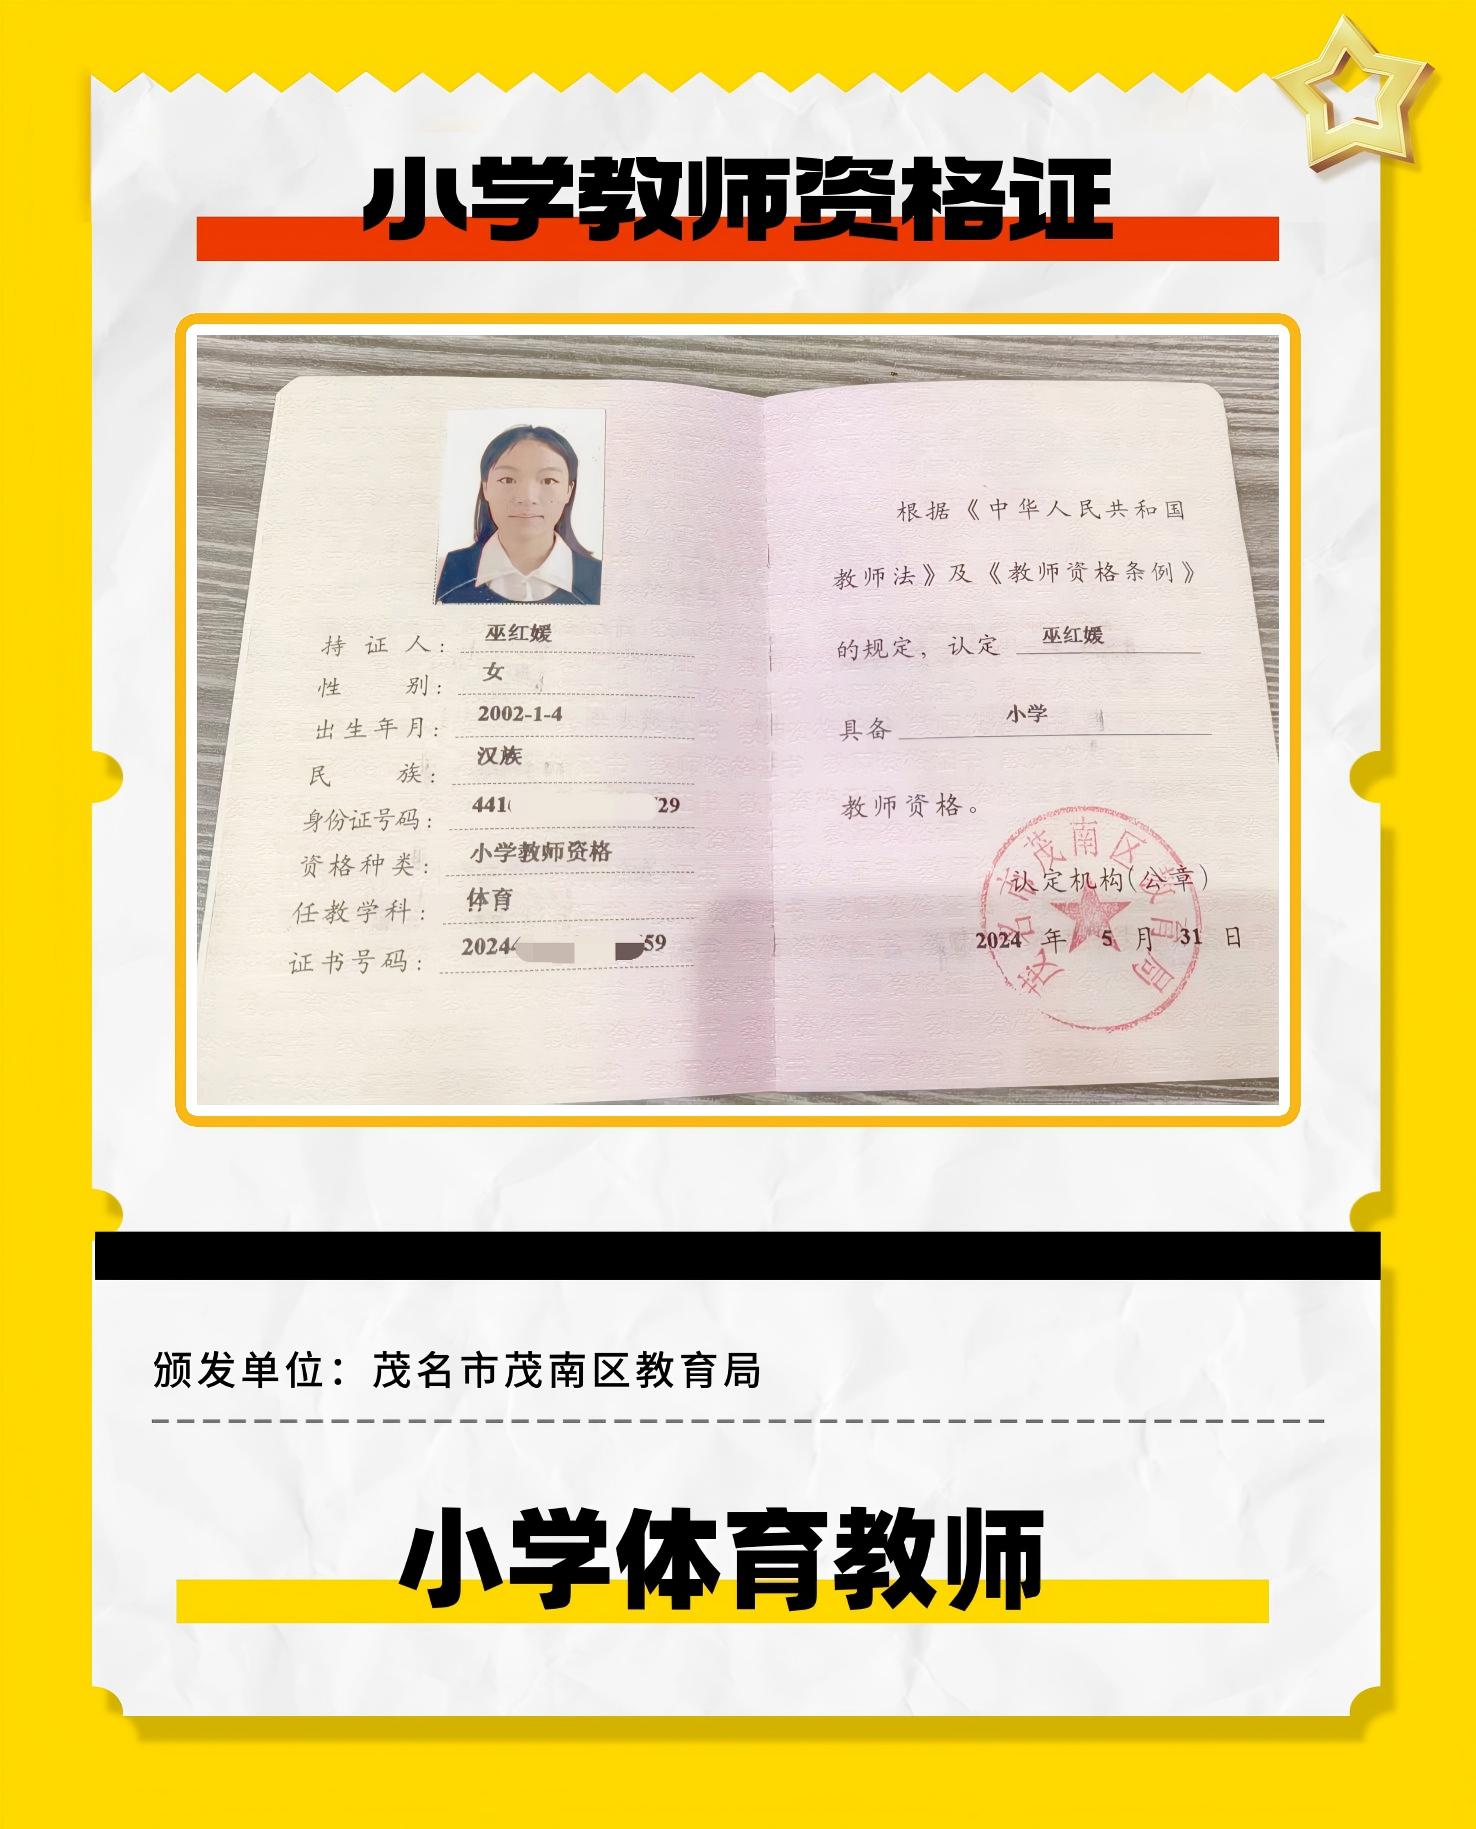 小学教师资格证
持证人：巫红媛
性别：女
出生年月：2002-1-4
民族：汉族
身份证号码：441 29
资格种类：小学教师资格
任教学科：体育
证书号码：2024 59
根据《中华人民共和国
教师法》及《教师资格条例》
的规定，认定 巫红媛
具备 小学
教师资格。
茂名市茂南区教育局
认定机构(公章)
2024 年 5 月 31 日
颁发单位：茂名市茂南区教育局
小学体育教师